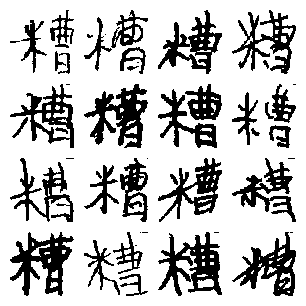 糟糟糟糟
糟糟糟糟
糟糟糟糟
糟糟糟糟